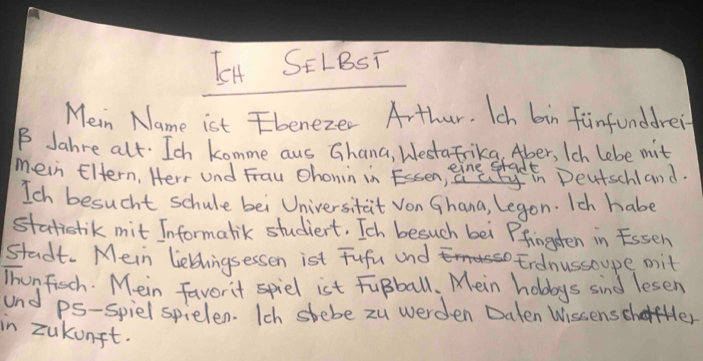 ICH SELBST
Mein Name ist Ebenezer Arthur. Ich bin fünfunddrei-
ß Jahre alt. Ich komme aus Ghana, Westafrika. Aber, Ich lebe mit
mein Eltern, Herr und Frau Ohonin in Essen, eine stadt in Deutschland.
Ich besucht schule bei Universität von Ghana, Legon. Ich habe
statistik mit Informatik studiert. Ich besuch bei Pfingsten in Essen
Stadt. Mein lieblingsessen ist Fufu und Erdnussoupe mit
Thunfisch. Mein favorit spiel ist Fußball. Mein hobbys sind lesen
und PS-spiel spielen. Ich stebe zu werden Daten Wissenschaftler
in zukunft.